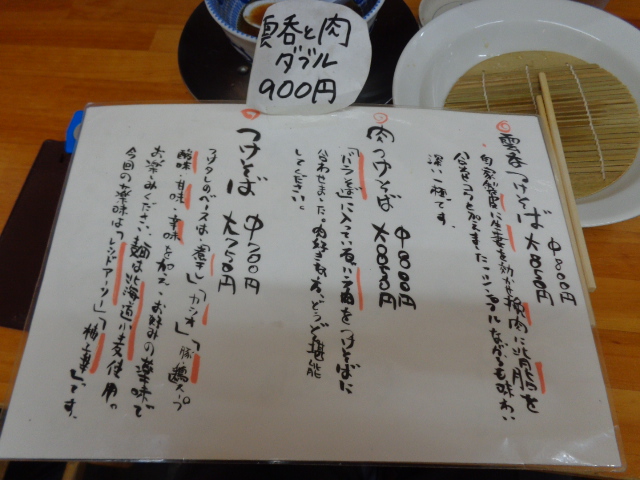 雲呑と肉
ダブル
900円
雲呑つけそば 中800円
大850円
自家製皮に生姜を効かせ挽肉に背脂を
合わせコクを加えました。シンプルながらも味わい
深い一種です。
肉つけそば 中800円
大850円
「バラそば」に入っている
をつけそばに
合わせました。肉好きなあなた、どうぞ堪能
してください。
つけそば 中700円
大750円
つけダレのベースは「煮干し」「カツオ」「豚・鶏スープ」
酸味・甘味・辛味を加え、お好みの薬味で
お楽しみください。麺は北海道小麦使用。
今回の薬味は「レッドアーリー」「柚子」です。